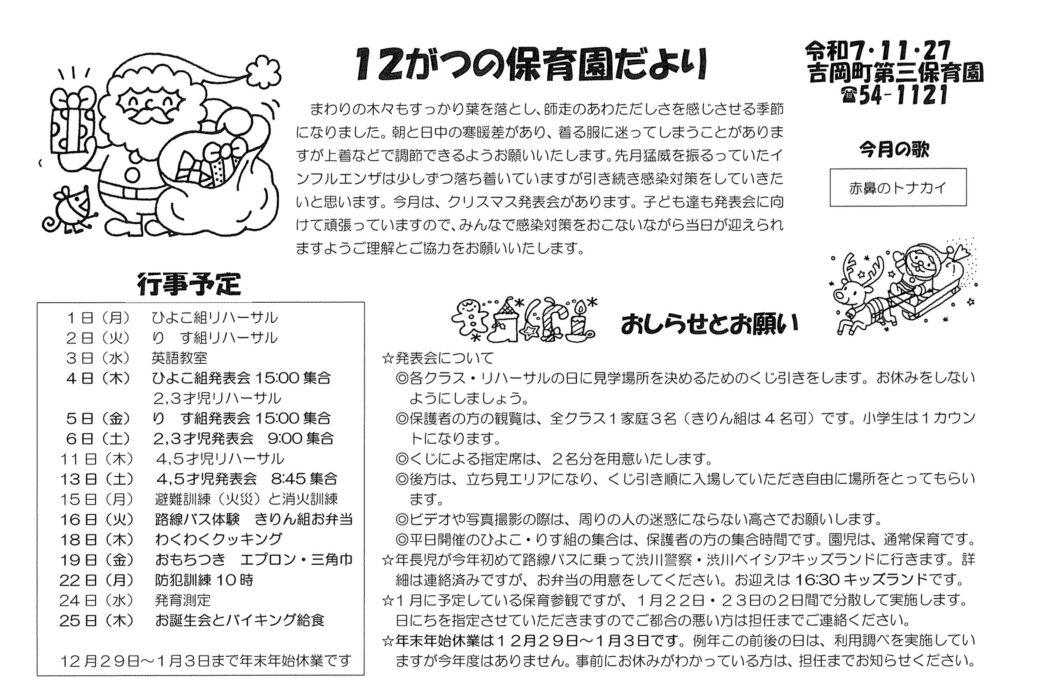 12がつの保育園だより
令和7・11・27
吉岡町第三保育園
☎54-1121
まわりの木々もすっかり葉を落とし、師走のあわただしさを感じさせる季節
になりました。朝と日中の寒暖差があり、着る服に迷ってしまうことがありま
すが上着などで調節できるようお願いいたします。先月猛威を振るっていたイ
ンフルエンザは少しずつ落ち着いていますが引き続き感染対策をしていきた
いと思います。今月は、クリスマス発表会があります。子ども達も発表会に向
けて頑張っていますので、みんなで感染対策をおこないながら当日が迎えられ
ますようご理解とご協力をお願いいたします。
今月の歌
赤鼻のトナカイ
行事予定
1日（月） ひよこ組リハーサル
2日（火） り す組リハーサル
3日（水） 英語教室
4日（木） ひよこ組発表会 15:00 集合
2,3才児リハーサル
5日（金） り す組発表会 15:00 集合
6日（土） 2,3才児発表会 9:00 集合
11日（木） 4,5才児リハーサル
13日（土） 4,5才児発表会 8:45 集合
15日（月） 避難訓練（火災）と消火訓練
16日（火） 路線バス体験 きりん組お弁当
18日（木） わくわくクッキング
19日（金） おもちつき エプロン・三角巾
22日（月） 防犯訓練 10時
24日（水） 発育測定
25日（木） お誕生会とバイキング給食
12月29日～1月3日まで年末年始休業です
おしらせとお願い
☆発表会について
◎各クラス・リハーサルの日に見学場所を決めるためのくじ引きをします。お休みをしない
ようにしましょう。
◎保護者の方の観覧は、全クラス1家庭3名（きりん組は4名可）です。小学生は1カウン
トになります。
◎くじによる指定席は、2名分を用意いたします。
◎後方は、立ち見エリアになり、くじ引き順に入場していただき自由に場所をとってもらい
ます。
◎ビデオや写真撮影の際は、周りの人の迷惑にならない高さでお願いします。
◎平日開催のひよこ・りす組の集合は、保護者の方の集合時間です。園児は、通常保育です。
☆年長児が今年初めて路線バスに乗って渋川警察・渋川ベイシアキッズランドに行きます。詳
細は連絡済みですが、お弁当の用意をしてください。お迎えは 16:30 キッズランドです。
☆1月に予定している保育参観ですが、1月22日・23日の2日間で分散して実施します。
日にちを指定させていただきますのでご都合の悪い方は担任までご連絡ください。
☆年末年始休業は12月29日～1月3日です。例年この前後の日は、利用調べを実施してい
ますが今年度はありません。事前にお休みがわかっている方は、担任までお知らせください。